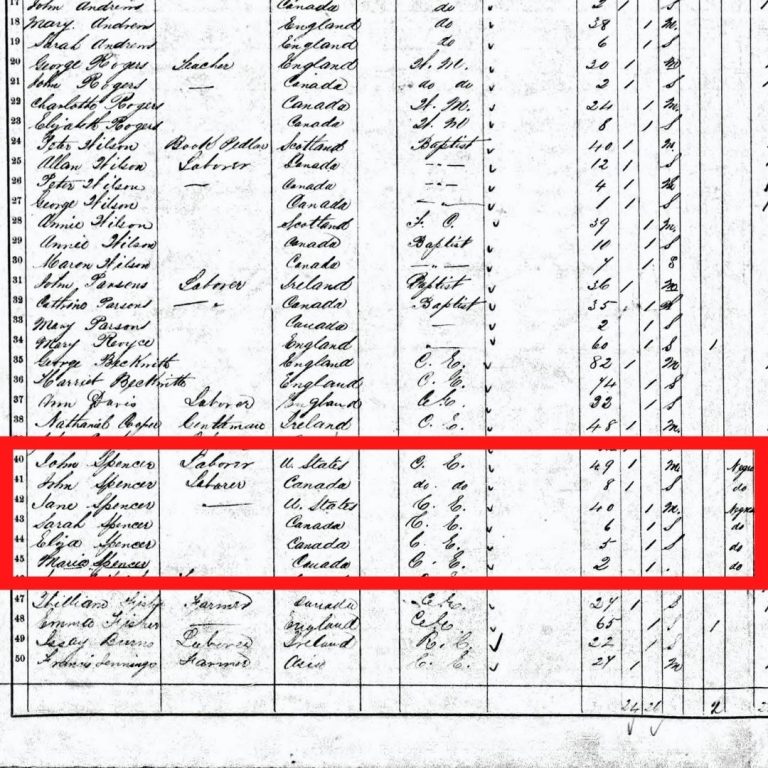 17 John Andrews Canada do 2 1 S
18 Mary Andrews England do 38 1 M.
19 Sarah Andrews England do 6 1 S
20 George Rogers Teacher England W. M. 30 1 M
21 John Rogers — Canada do do 2 1 S
22 Charlotte Rogers Canada W. M. 24 1 M.
23 Elizabeth Rogers Canada W. M 8 1 S
24 Peter Wilson Book Pedlar Scotland Baptist 40 1 M.
25 Allan Wilson Laborer Canada 12 1 S
26 Peter Wilson — Canada 4 1
27 George Wilson Canada 1 1 S
28 Annie Wilson Scotland F. C. 39 1 M.
29 Annie Wilson Canada Baptist 10 1 S
30 Wilson Canada 7 1 S
31 John Parsons Laborer Ireland Baptist 36 1 M
32 Parsons Canada Baptist 35 1
33 Mary Parsons Canada — 2 1 S
34 Mary England 60 1 S 1
35 George Beckwith England C. E. 82 1 M
36 Harriet Beckwith England C. E. 74 1 S
37 Ann Davis Laborer England 32 1 S
38 Nathaniel Cooper Gentleman Ireland C. E. 48 1 M.
40 John Spencer Laborer U. States C. E. 49 1 M Negro
41 John Spencer Laborer Canada do. do 8 1 S do
42 Jane Spencer — U. States C. E. 40 1 M. Negro
43 Sarah Spencer Canada C. E. 6 1 S do
44 Eliza Spencer Canada C. E. 5 1 S do
45 Maria Spencer Canada C. E. 2 1 . do
47 William Fisher Farmer Canada 27 1 S
48 Emma Fisher — England 65 1 S 1
49 Burns Laborer Ireland R. C. 22 1 S
50 Francis Jennings Farmer C. E. 27 1 M
2